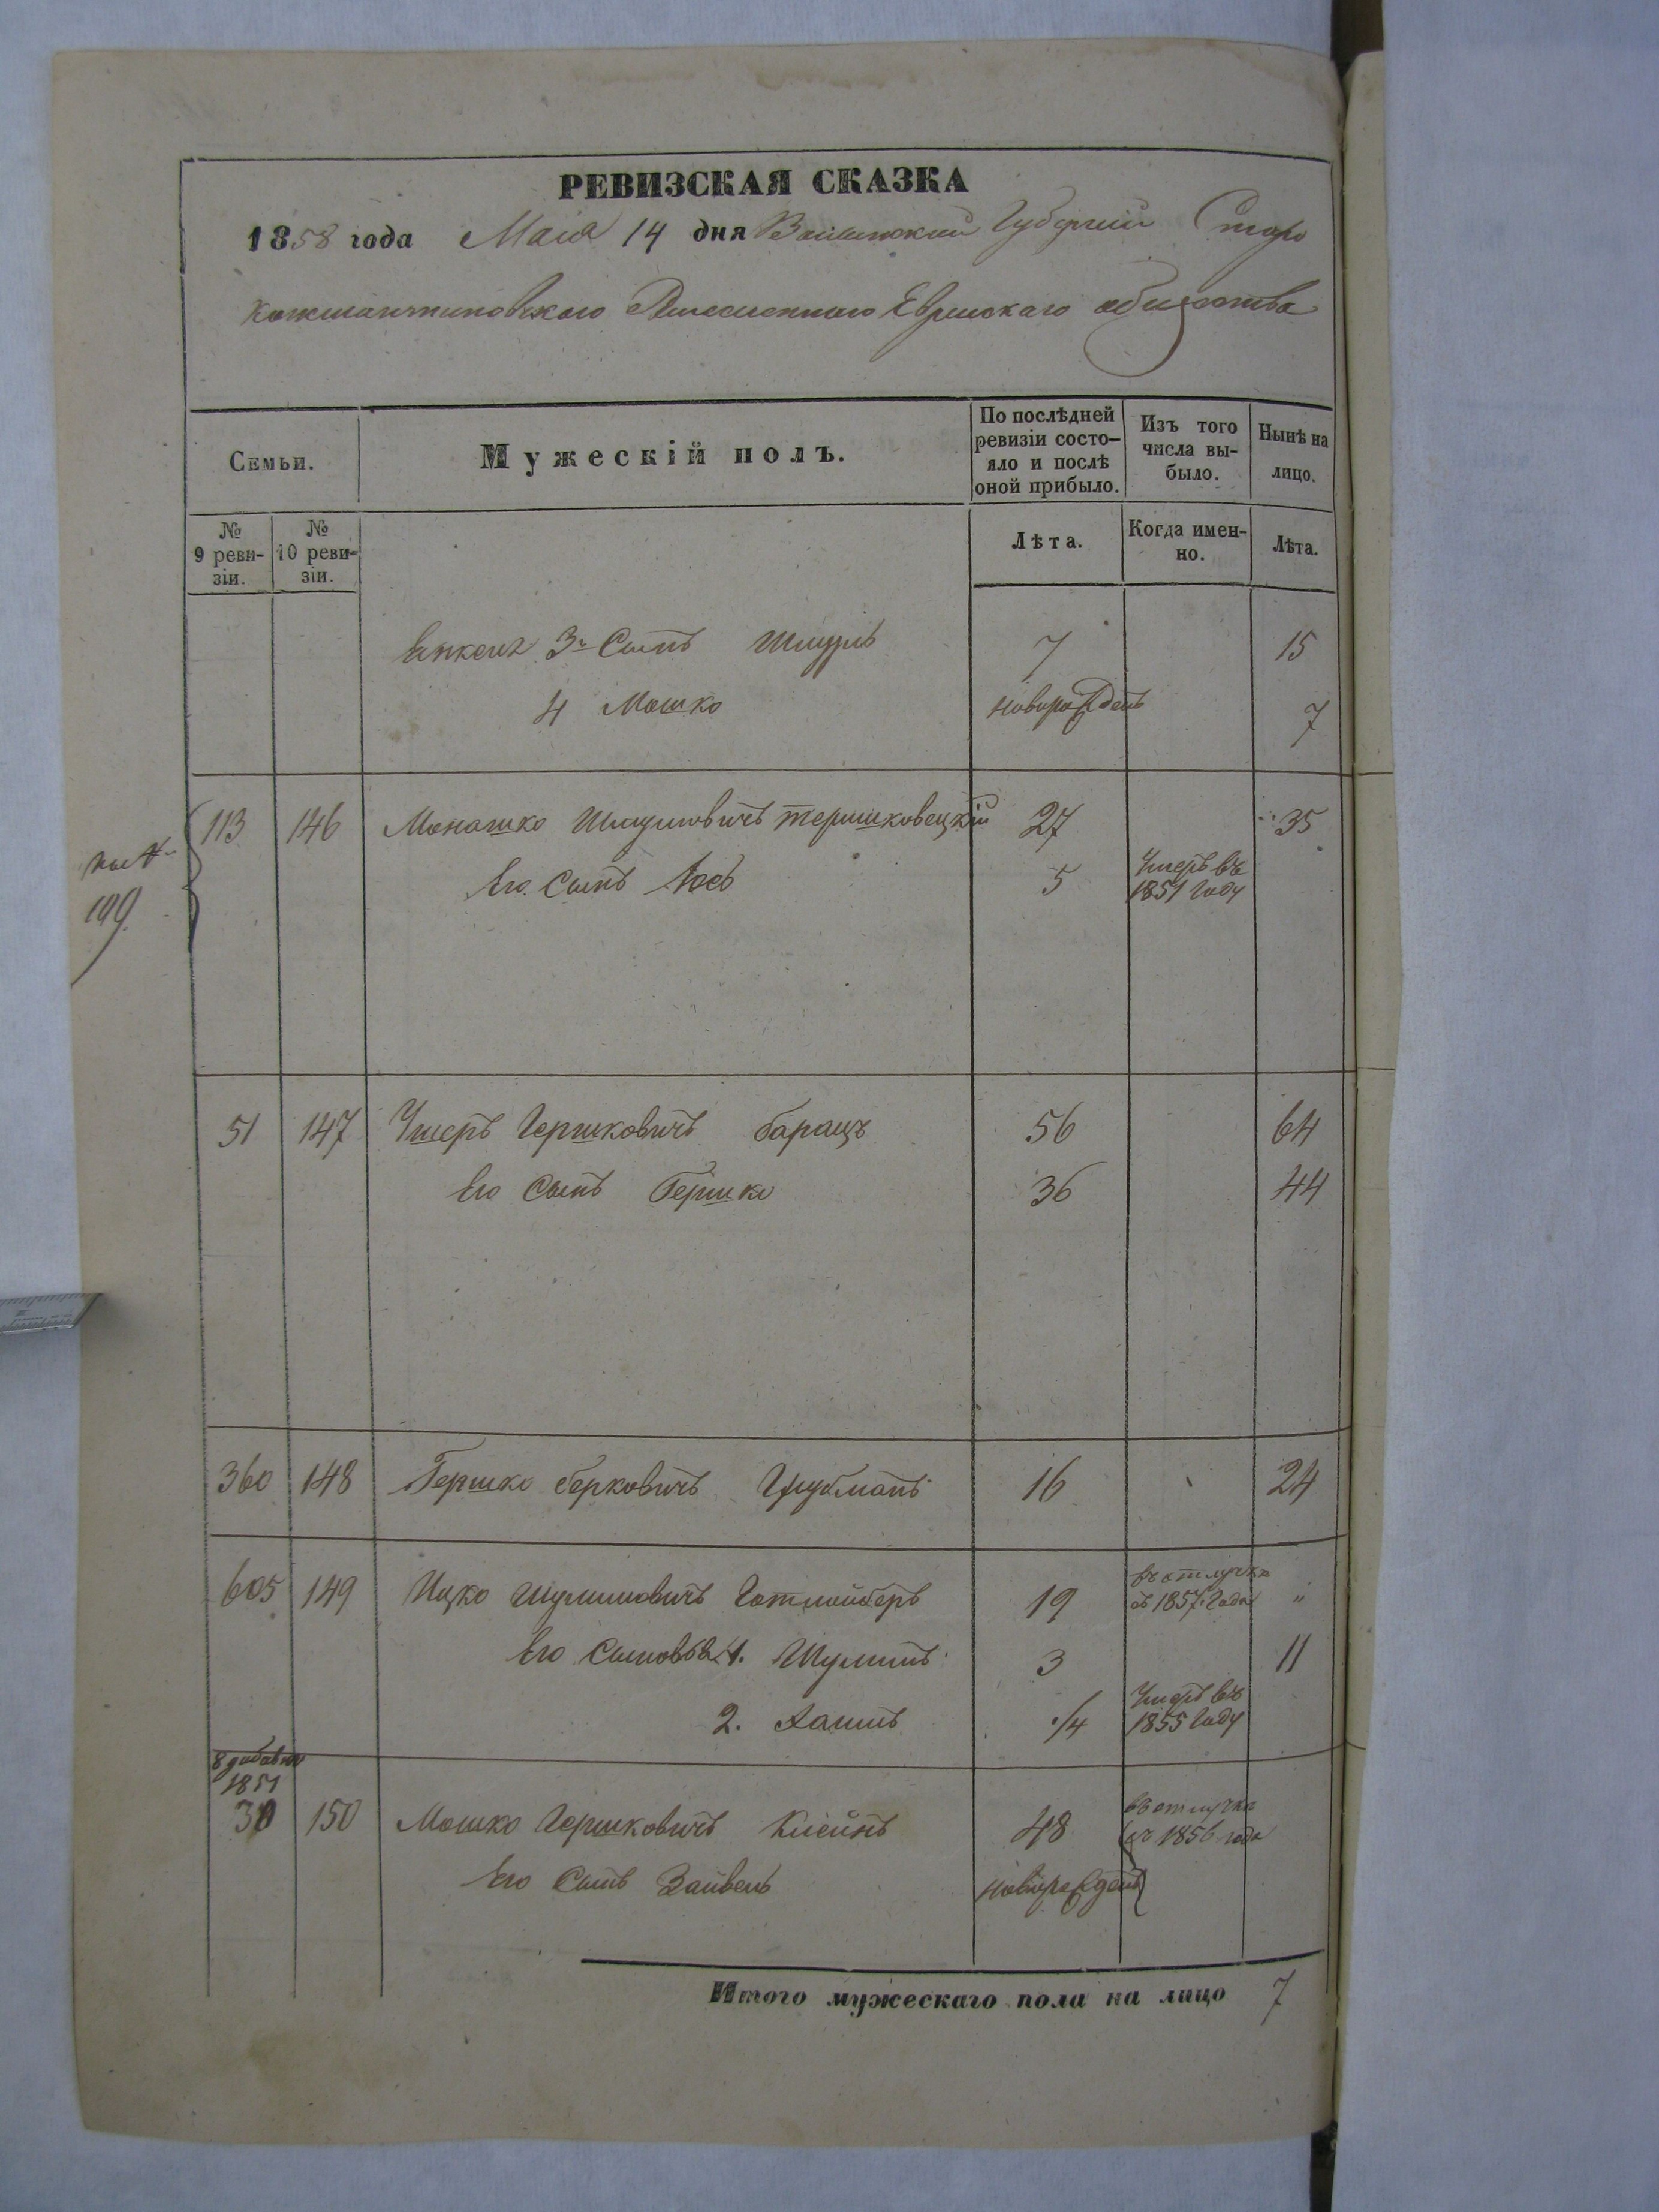 РЕВИЗСКАЯ СКАЗКА
1858 года Маія 14 дня Волынской Губерніи Старо
константиновскаго Еврейскаго общества
Семьи.
Мужескій полъ.
По послѣдней ревизіи состо-
яло и послѣ
оной прибыло.
Изъ того
числа вы-
было.
Нынѣ на
лицо.
№
9 реви-
зіи.
№
10 реви-
зіи.
Лѣта.
Когда имен-
но.
Лѣта.
3й Сынъ Шмуль 7 15
4 Мошко новорожденъ 7
109
113 146 Монашко Шмулиовичъ Терешковецкій 27 35
Его Сынъ Іосъ 5 Умеръ въ
1851 Году
51 147 Ушеръ Гершковичъ Баращъ 56 64
Его Сынъ Гершко 36 44
360 148 Гершко Берковичъ Грубманъ 16 24
605 149 Ицко Шулимовичъ Готлойберъ 19 въ отлучкѣ
съ 1857 Года "
Его Сыновья 1. Шулимъ 3 11
2. Хаимъ 1/4 Умеръ въ
1855 Году
1851
30 150 Мошко Гершковичъ Клейнъ 48 въ отлучкѣ
съ 1856 года
Его Сынъ Зайвель новорожденъ
Итого мужескаго пола на лицо 7